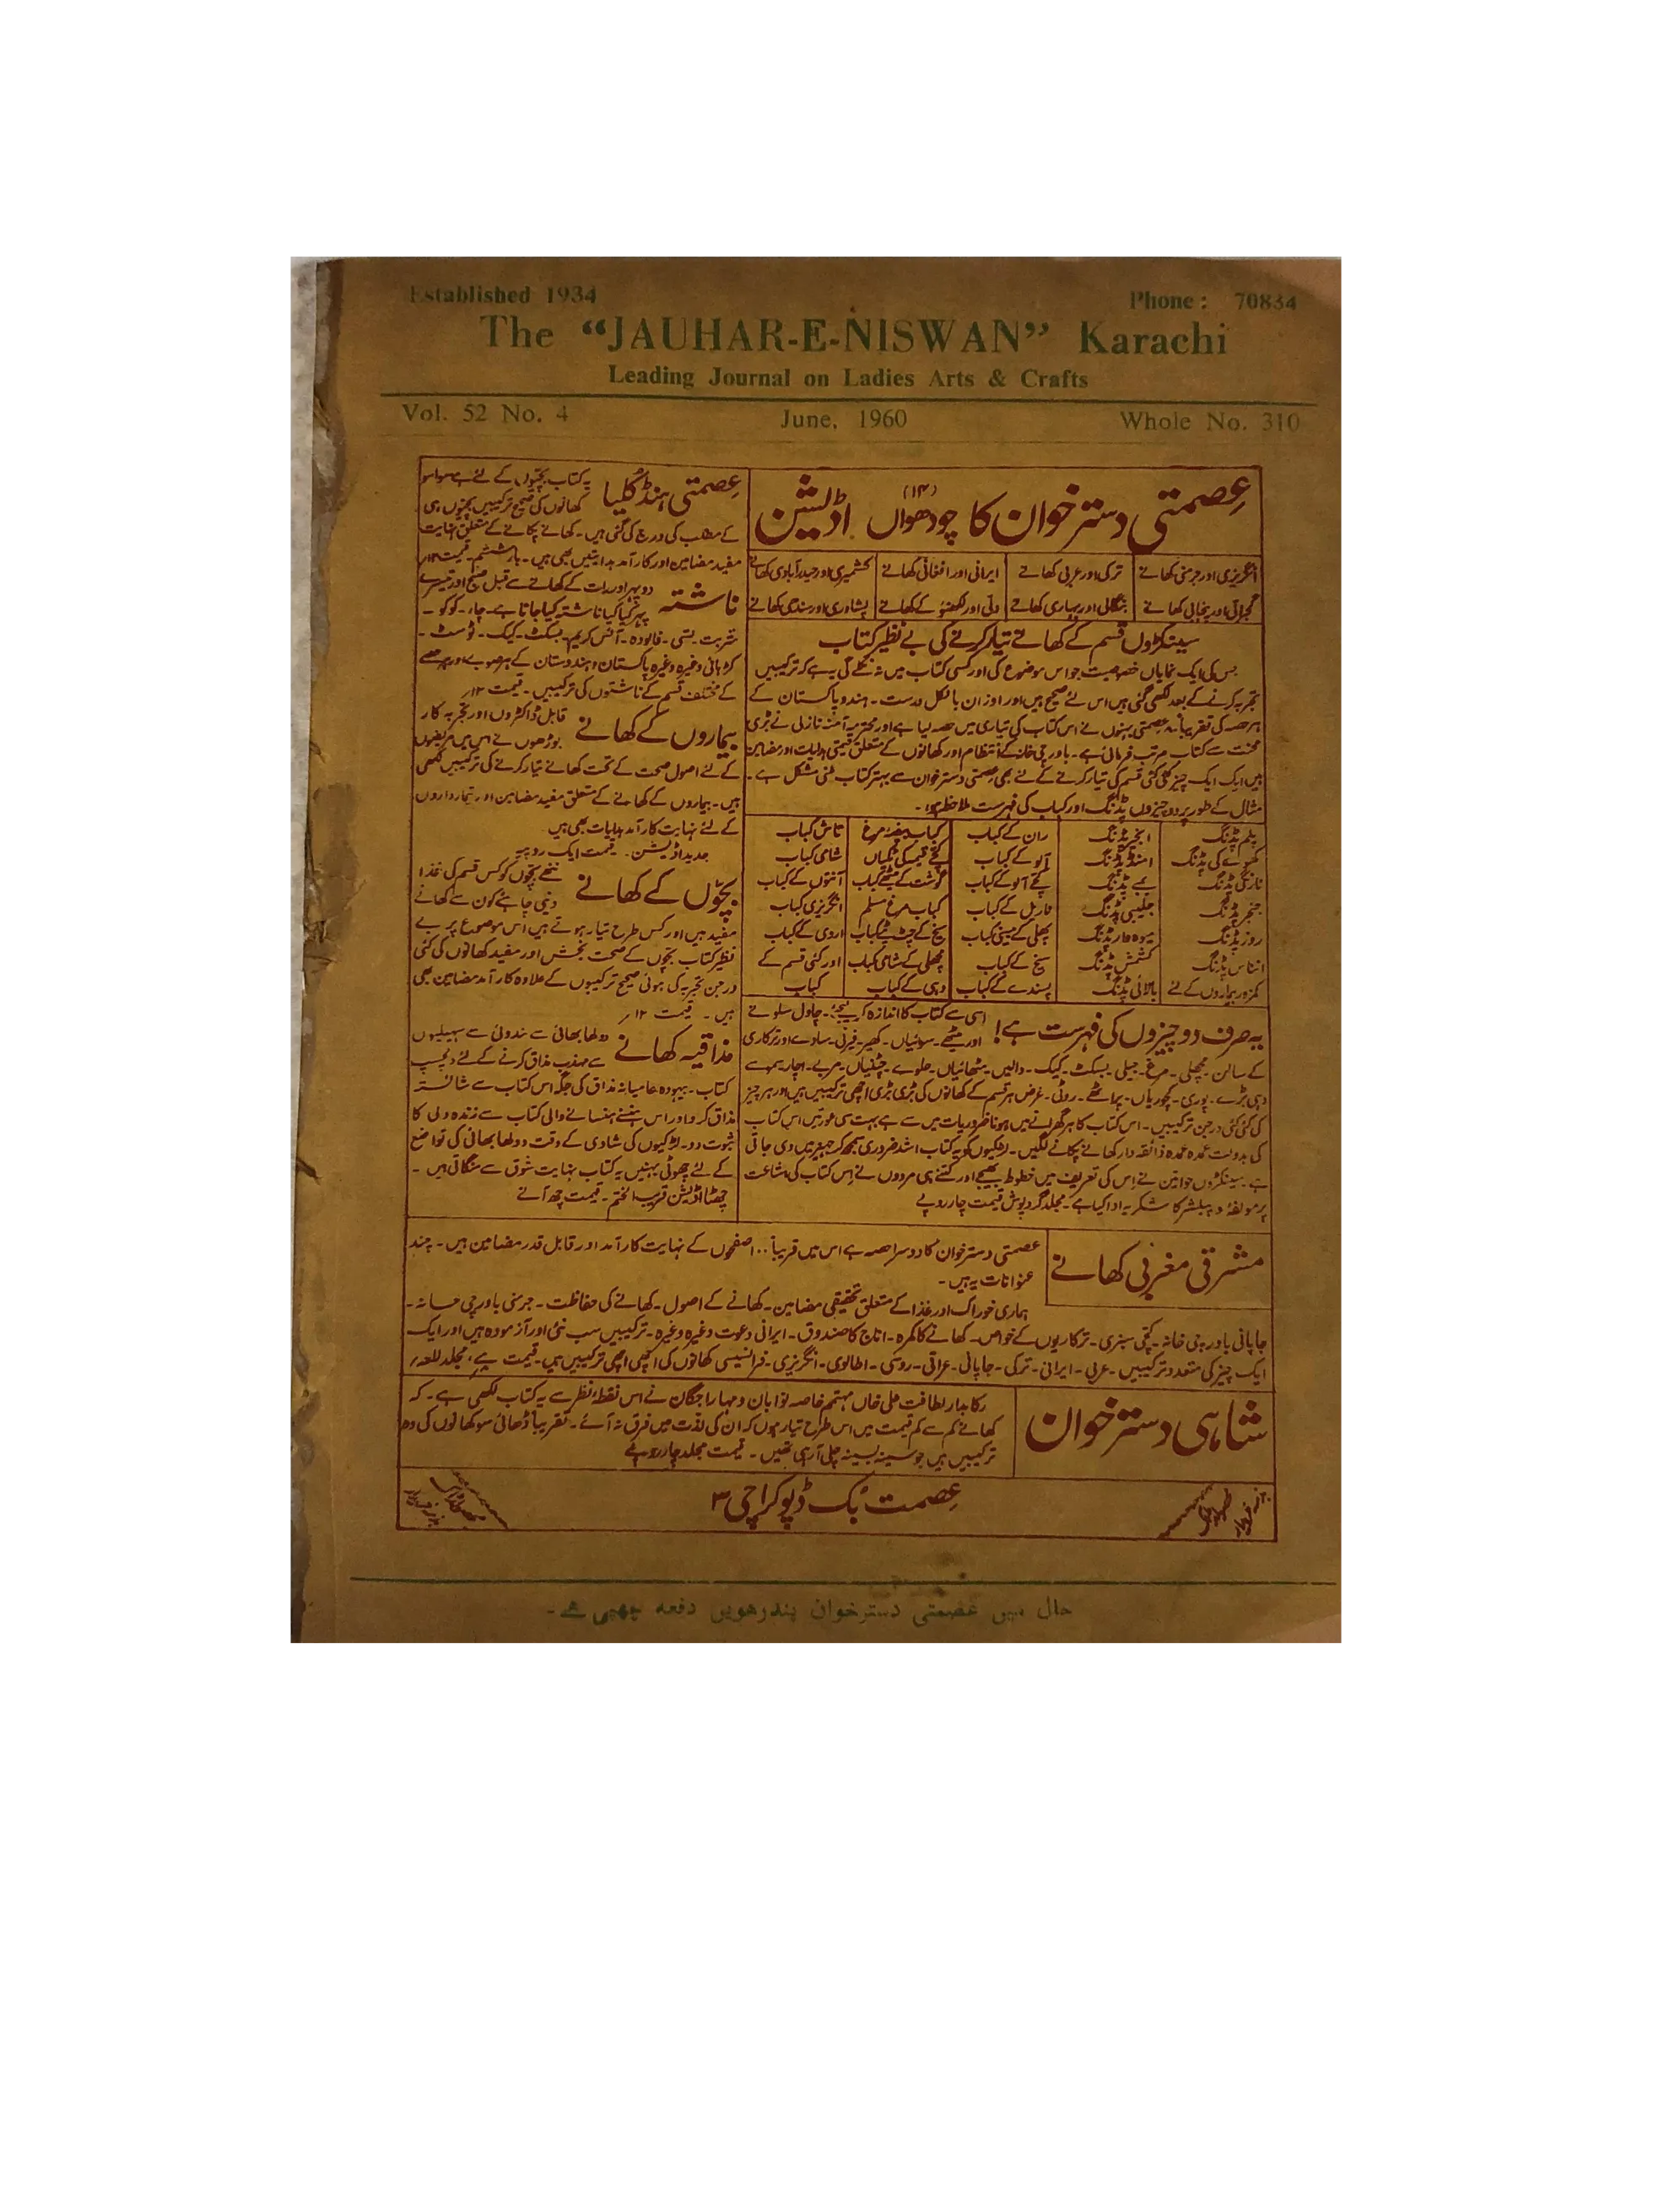 Established 1934
Phone : 70834
The “JAUHAR-E-NISWAN” Karachi
Leading Journal on Ladies Arts & Crafts
Vol. 52 No. 4
June, 1960
Whole No. 310
عصمتی دسترخوان کا چودھواں (۱۴) اڈیشن
انگریزی اور جرمنی کھانے
ترکی اور عربی کھانے
ایرانی اور افغانی کھانے
کشمیری اور حیدرآبادی کھانے
گجراتی اور پنجابی کھانے
بنگالی اور بہاری کھانے
دلّی اور لکھنؤ کے کھانے
پشاوری اور سندھی کھانے
سینکڑوں قسم کے کھانے تیار کرنے کی بے نظیر کتاب
جس کی ایک نمایاں خصوصیت جو اس موضوع کی اور کسی کتاب میں نہ نکلے گی یہ ہے کہ ترکیبیں
تجربہ کرنے کے بعد لکھی گئی ہیں اس لئے صحیح ہیں اور اوزان بالکل درست۔ ہندو پاکستان کے
ہر حصہ کی تقریباً عصمتی بہنوں نے اس کتاب کی تیاری میں حصہ لیا ہے اور محترمہ آمنہ نازلی نے بڑی
محنت سے کتاب مرتب فرمائی ہے۔ باورچی خانہ کے انتظام اور کھانوں کے متعلق قیمتی ہدایات اور مضامین
ہیں ایک ایک چیز کئی کئی قسم کی تیار کرنے کے لئے بھی عصمتی دسترخوان سے بہتر کتاب ملنی مشکل ہے۔
مثال کے طور پر دو چیزوں پڈنگ اور کباب کی فہرست ملاحظہ ہو۔
پلم پڈنگ
انجیر پڈنگ
ران کے کباب
کباب بیضۂ مرغ
تاش کباب
کھوے کی پڈنگ
امنڈ پڈنگ
آلو کے کباب
کچے قیمہ کی ٹکیاں
شامی کباب
نارنگی پڈنگ
بے پڈنگ
کچے آلو کے کباب
گوشت کے میٹھے کباب
آنتوں کے کباب
جنجر پڈنگ
جلیبی پڈنگ
ناریل کے کباب
کباب مرغ مسلم
انگریزی کباب
روز پڈنگ
میوہ دار پڈنگ
مچھلی کے سیخی کباب
سیخ کے چٹ پٹے کباب
اروی کے کباب
انناس پڈنگ
کشمش پڈنگ
سیخ کے کباب
مچھلی کے شامی کباب
اور کئی قسم کے
کمزور بیماروں کے لئے
بالائی پڈنگ
پسندے کے کباب
دہی کے کباب
کباب
یہ صرف دو چیزوں کی فہرست ہے! اسی سے کتاب کا اندازہ کر لیجئے۔ چاول سلونے
اور میٹھے۔ سوئیاں۔ کھیر۔ فیرنی۔ سادے اور ترکاری
کے سالن۔ مچھلی۔ مرغ۔ جیلی۔ بسکٹ۔ کیک۔ دالیں۔ مٹھائیاں۔ حلوے۔ چٹنیاں۔ مربے۔ اچار۔ سموسے
دہی بڑے۔ پوری۔ کچوریاں۔ پراٹھے۔ روٹی۔ غرض ہر قسم کے کھانوں کی بڑی بڑی اچھی ترکیبیں ہیں اور ہر چیز
کی کئی کئی درجن ترکیبیں۔ اس کتاب کا ہر گھرانے میں ہونا ضروریات میں سے ہے بہت سی عورتیں اس کتاب
کی بدولت عمدہ عمدہ ذائقہ دار کھانے پکانے لگیں۔ لڑکیوں کو یہ کتاب اشد ضروری سمجھ کر جہیز میں دی جاتی
ہے۔ سینکڑوں خواتین نے اس کی تعریف میں خطوط بھیجے اور کتنے ہی مردوں نے اس کتاب کی اشاعت
پر مولفہ و پبلشر کا شکریہ ادا کیا ہے۔ مجلد گرد پوش قیمت چار روپے
عصمتی ہنڈ کُلیا یہ کتاب بچیوں کے لئے ہے سوا سو
کھانوں کی صحیح ترکیبیں بچیوں ہی
کے مطلب کی درج کی گئی ہیں۔ کھانے پکانے کے متعلق نہایت
مفید مضامین اور کارآمد ہدایتیں بھی ہیں۔ بار ششم۔ قیمت ۱۲؍
ناشتہ دوپہر اور رات کے کھانے سے قبل صبح اور تیسرے
پہر کیا کیا ناشتہ کیا جاتا ہے۔ چاء۔ کوکو۔
شربت۔ لسّی۔ فالودہ۔ آئس کریم۔ بسکٹ۔ کیک۔ ٹوسٹ۔
کڑہائی وغیرہ وغیرہ پاکستان و ہندوستان کے ہر صوبے اور ہر حصے
کے مختلف قسم کے ناشتوں کی ترکیبیں۔ قیمت ۱۲؍
بیماروں کے کھانے قابل ڈاکٹروں اور تجربہ کار
بوڑھوں نے اس میں مریضوں
کے لئے اصول صحت کے تحت کھانے تیار کرنے کی ترکیبیں لکھی
ہیں۔ بیماروں کے کھانے کے متعلق مفید مضامین اور تیمارداروں
کے لئے نہایت کارآمد ہدایات بھی ہیں۔
جدید اڈیشن۔ قیمت ایک روپیہ
بچّوں کے کھانے ننھے بچوں کو کس قسم کی غذا
دینی چاہئے کون سے کھانے
مفید ہیں اور کس طرح تیار ہوتے ہیں اس موضوع پر بے
نظیر کتاب بچّوں کے صحت بخش اور مفید کھانوں کی کئی
درجن تجربہ کی ہوئی صحیح ترکیبوں کے علاوہ کارآمد مضامین بھی
ہیں۔ قیمت ۱۲؍
مذاقیہ کھانے دولھا بھائی سے نندوئی سے سہیلیوں
سے مہذب مذاق کرنے کے لئے دلچسپ
کتاب۔ بیہودہ عامیانہ مذاق کی جگہ اس کتاب سے شائستہ
مذاق کرو اور اس ہنسنے ہنسانے والی کتاب سے زندہ دلی کا
ثبوت دو۔ لڑکیوں کی شادی کے وقت دولھا بھائی کی تواضع
کے لئے چھوٹی بہنیں یہ کتاب نہایت شوق سے منگاتی ہیں۔
چھٹا اڈیشن قریب الختم۔ قیمت چھ آنے
مشرقی مغربی کھانے
عصمتی دسترخوان کا دوسرا حصہ ہے اس میں قریباً ۱۰۰ صفحوں کے نہایت کارآمد اور قابل قدر مضامین ہیں۔ چند
عنوانات یہ ہیں۔
ہماری خوراک اور غذا کے متعلق تحقیقی مضامین۔ کھانے کے اصول۔ کھانے کی حفاظت۔ جرمنی باورچی خانہ۔
جاپانی باورچی خانہ۔ کچی سبزی۔ ترکاریوں کے خواص۔ کھانے کا کمرہ۔ اناج کا صندوق۔ ایرانی دعوت وغیرہ وغیرہ۔ ترکیبیں سب نئی اور آزمودہ ہیں اور ایک
ایک چیز کی متعدد ترکیبیں۔ عربی۔ ایرانی۔ ترکی۔ جاپانی۔ عراقی۔ روسی۔ اطالوی۔ انگریزی۔ فرانسیسی کھانوں کی اچھی اچھی ترکیبیں ہیں۔ قیمت مجلد
شاہی دسترخوان
رکابدار لطافت علی خاں مہتمم خاصہ نوابان و مہاراجگان نے اس نقطۂ نظر سے یہ کتاب لکھی ہے۔ کہ
کھانے کم سے کم قیمت میں اس طرح تیار ہوں کہ ان کی لذت میں فرق نہ آئے۔ تقریباً ڈھائی سو کھانوں کی وہ
ترکیبیں ہیں جو سینہ بسینہ چلی آرہی تھیں۔ قیمت مجلد چار روپے
عصمت بُک ڈپو کراچی ۳
حال میں عصمتی دسترخوان پندرھویں دفعہ چھپی ہے۔